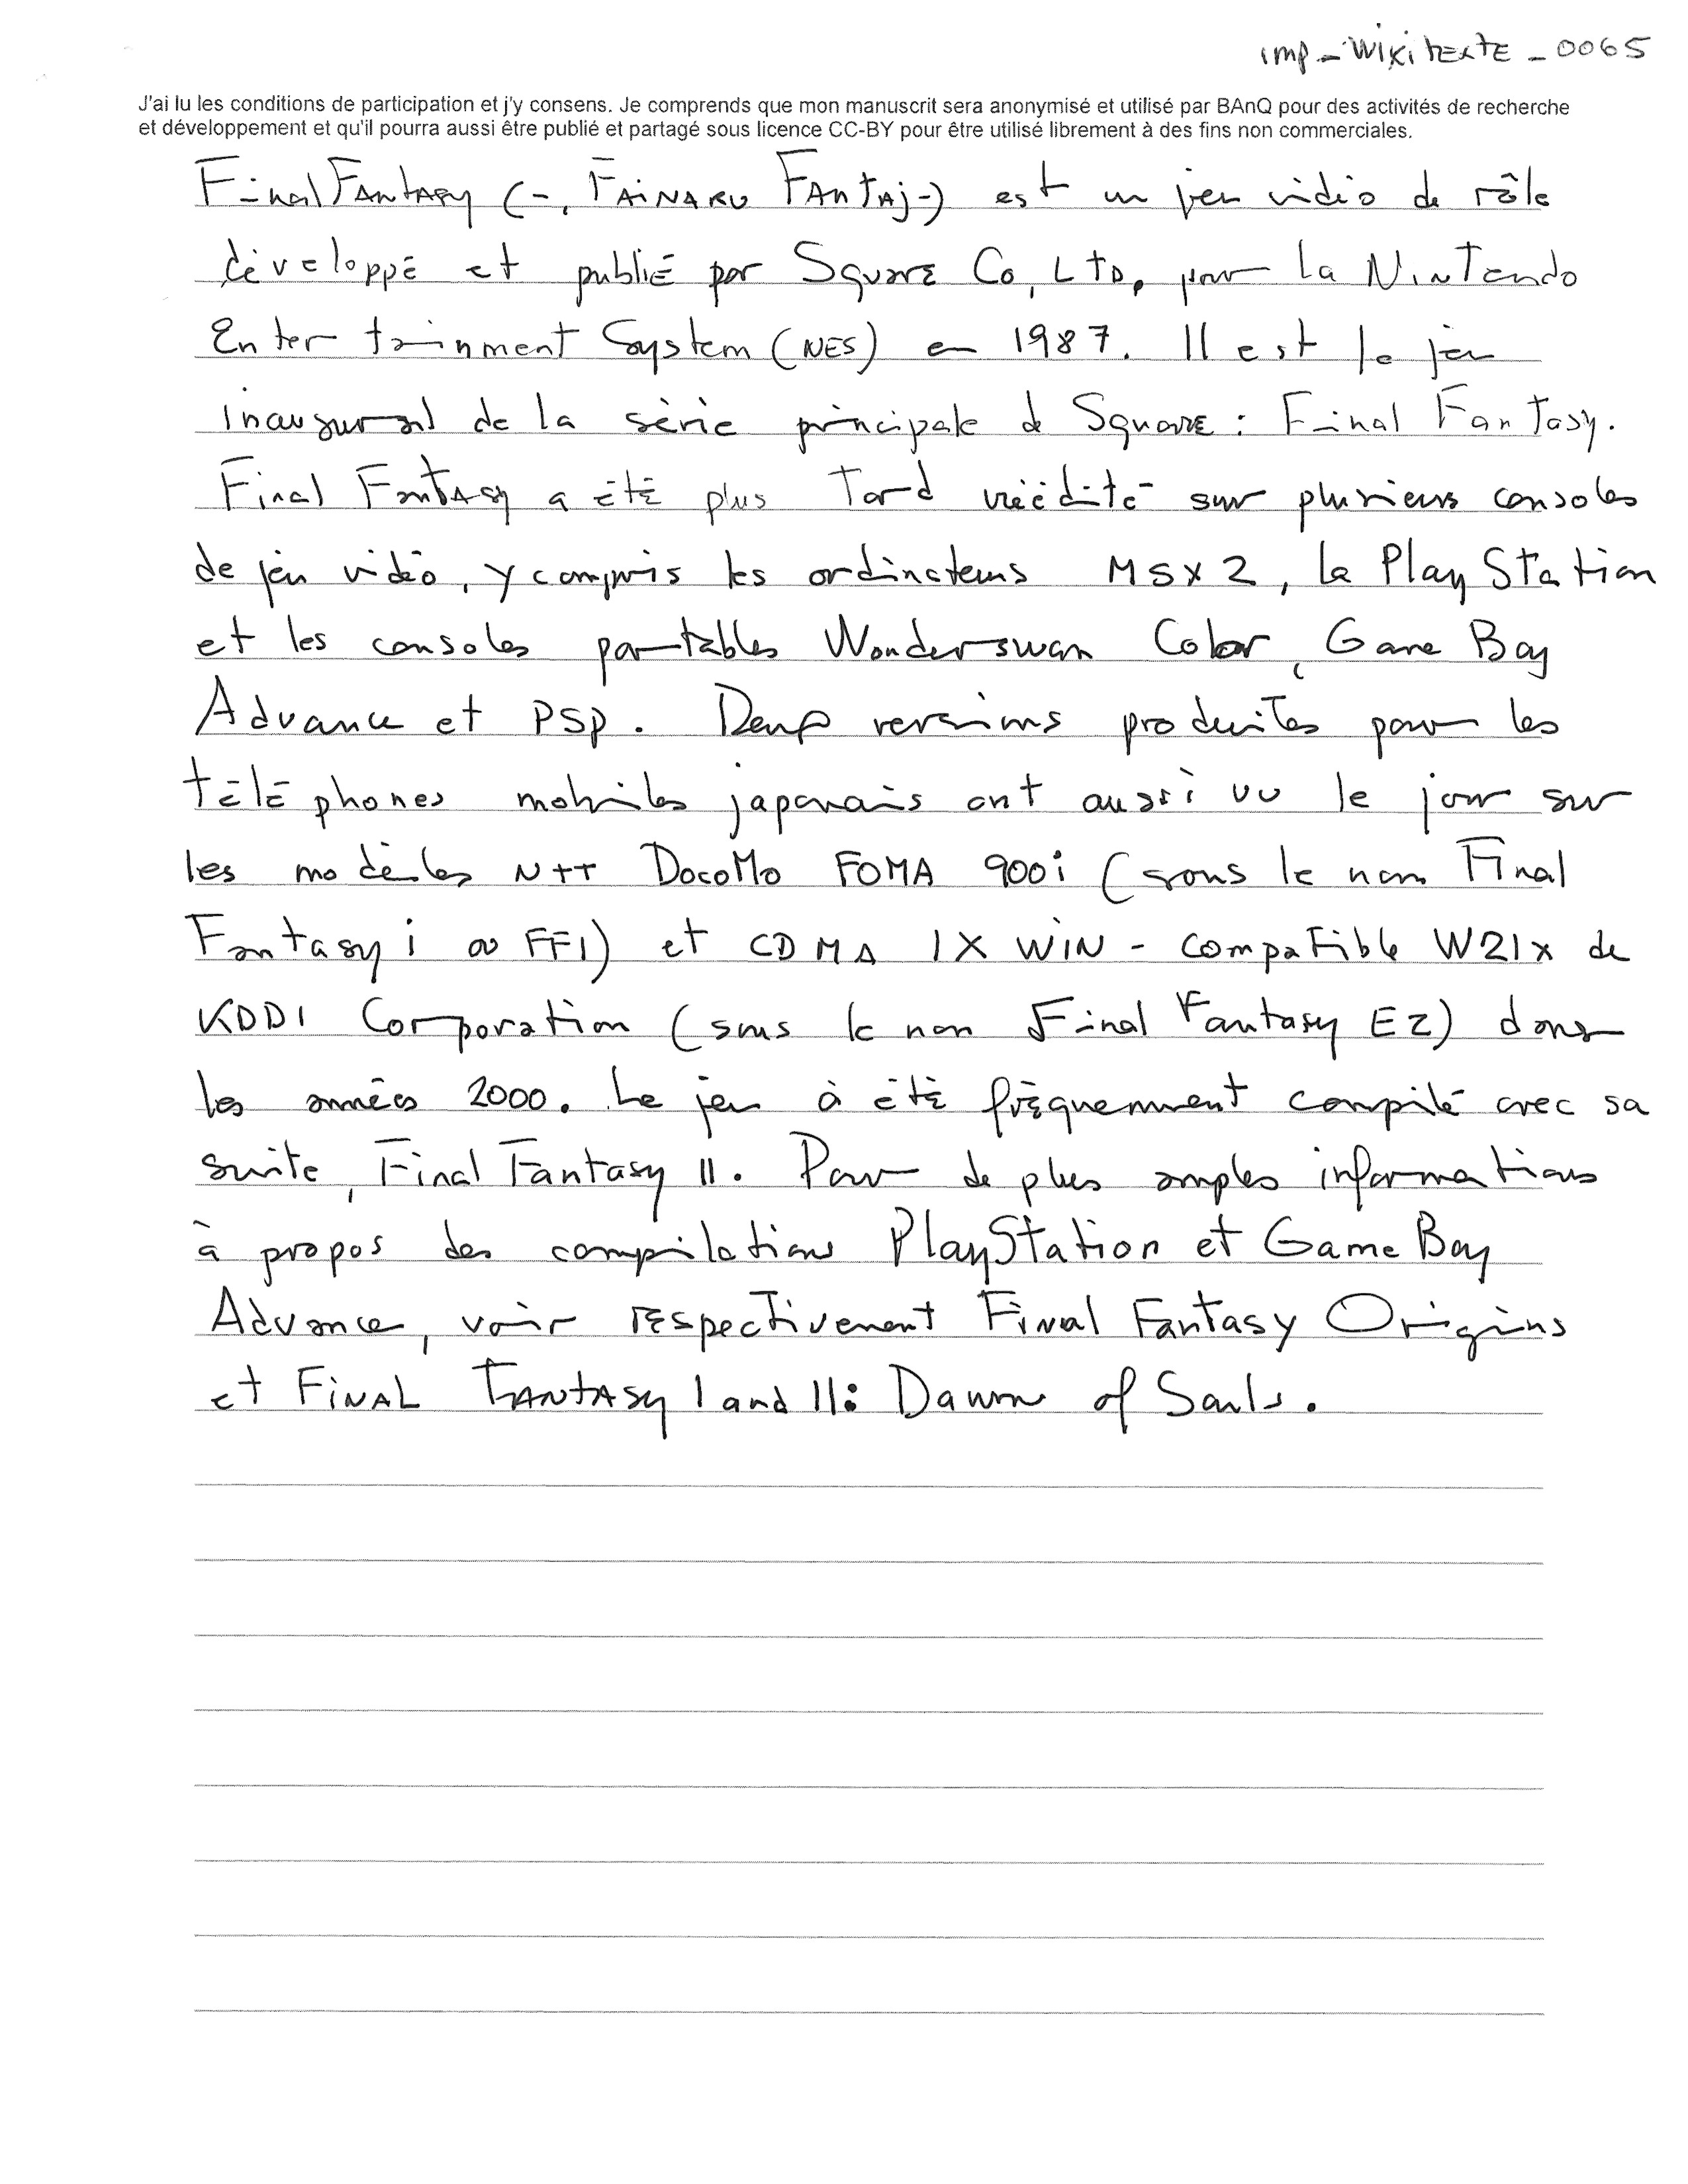 imp_wikitexte_0065
J'ai lu les conditions de participation et j'y consens. Je comprends que mon manuscrit sera anonymisé et utilisé par BAnQ pour des activités de recherche
et développement et qu'il pourra aussi être publié et partagé sous licence CC-BY pour être utilisé librement à des fins non commerciales.
Final Fantasy (-, Fainaru Fantaji-) est un jeu vidéo de rôle
développé et publié par Square Co, Ltd, pour la Nintendo
Entertainment System (NES) en 1987. Il est le jeu
inaugural de la série principale de Square : Final Fantasy.
Final Fantasy a été plus tard réédité sur plusieurs consoles
de jeu vidéo, y compris les ordinateurs MSX2, la PlayStation
et les consoles portables Wonderswan Color, Game Boy
Advance et PSP. Deux versions produites pour les
téléphones mobiles japonais ont aussi vu le jour sur
les modèles NTT DocoMo FOMA 900i (sous le nom Final
Fantasy i ou FFI) et CDMA 1X WIN - compatible W21x de
KDDI Corporation (sous le nom Final Fantasy EZ) dans
les années 2000. Le jeu à été fréquemment compilé avec sa
suite, Final Fantasy II. Pour de plus amples informations
à propos des compilations PlayStation et Game Boy
Advance, voir respectivement Final Fantasy Origins
et Final Fantasy I and II: Dawn of Souls.